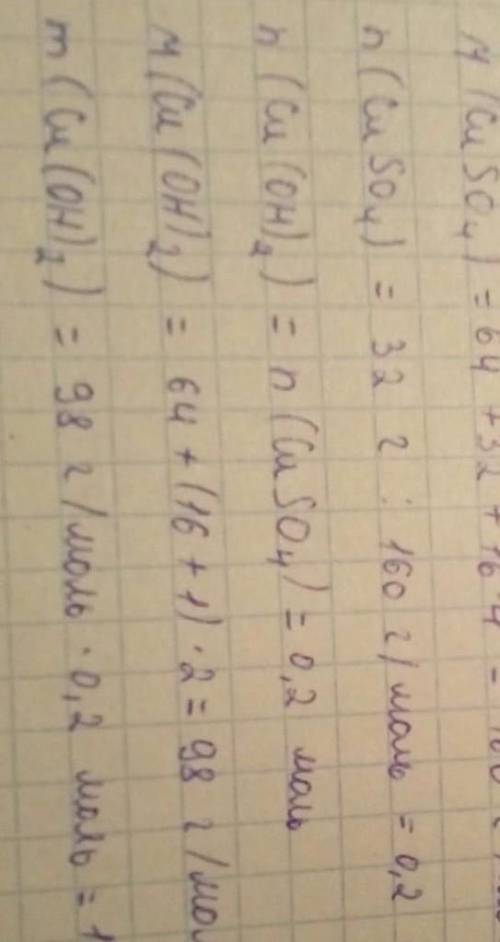 M(CuSO₄) = 64 + 32 + 16 · 4 = 160
n(CuSO₄) = 32 г : 160 г/моль = 0,2
n(Cu(OH)₂) = n(CuSO₄) = 0,2 моль
M(Cu(OH)₂) = 64 + (16 + 1) · 2 = 98 г/мол
m(Cu(OH)₂) = 98 г/моль · 0,2 моль = 1